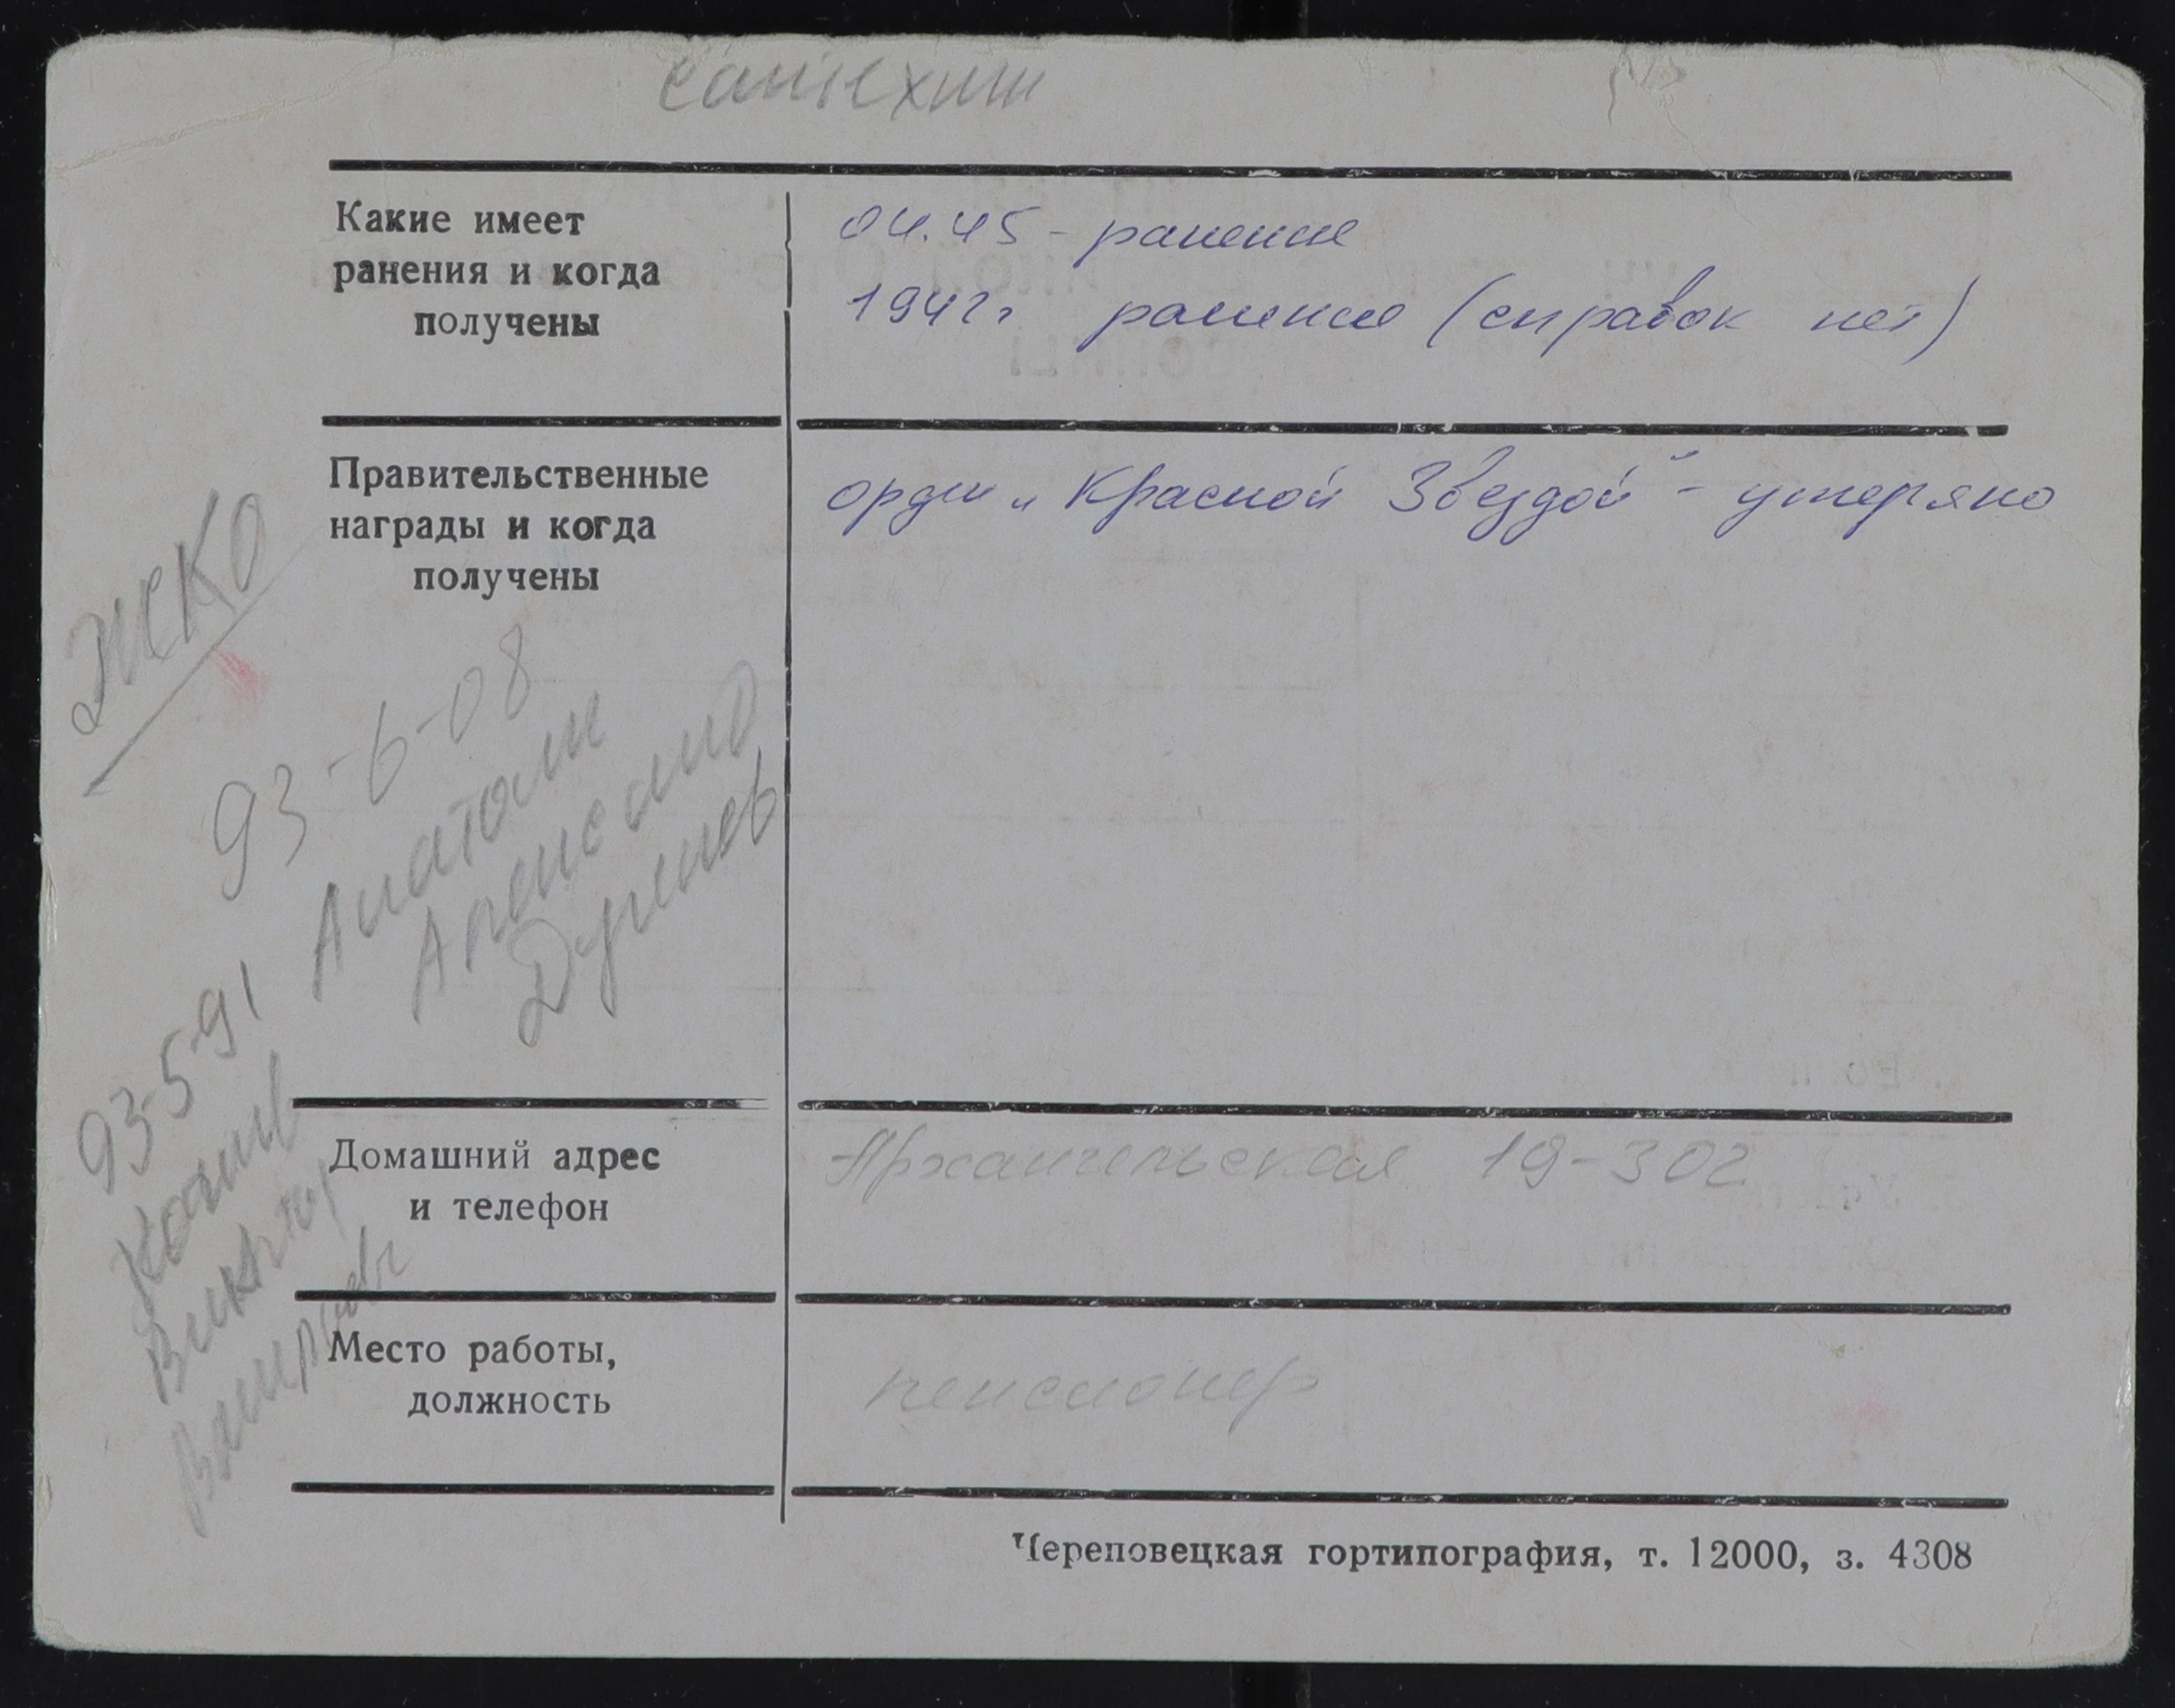 сантехник
Какие имеет
ранения и когда
получены
04.45 - ранение
1942г ранение (справок нет)
Правительственные
награды и когда
получены
орден „Красной Звездой" - утеряно
ЖКО
93-6-08
Анатоли
Александ
93-5-91
Виктор
Домашний адрес
и телефон
Архангельская 19-302
Место работы,
должность
пенсионер
Череповецкая гортипография, т. 12000, з. 4308